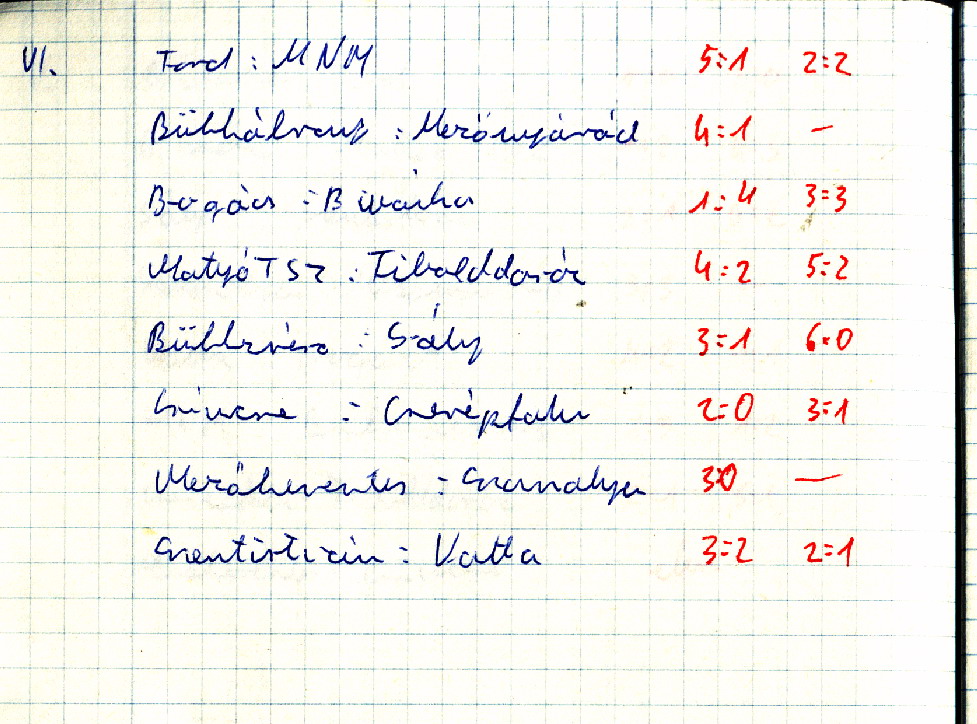 VI. Tard : MNM 5:1 2:2
Bükkábrány : Mezőnyárád 4:1 —
Bogács : Bükkábr 1:4 3:3
Matyó TSZ : Tibolddaróc 4:2 5:2
Bükkzsérc : Sály 3:1 6:0
Csincse : Cserépfalu 2:0 3:1
Mezőkeresztes : Szomolya 3:0 —
Szentistván : Vatta 3:2 2:1